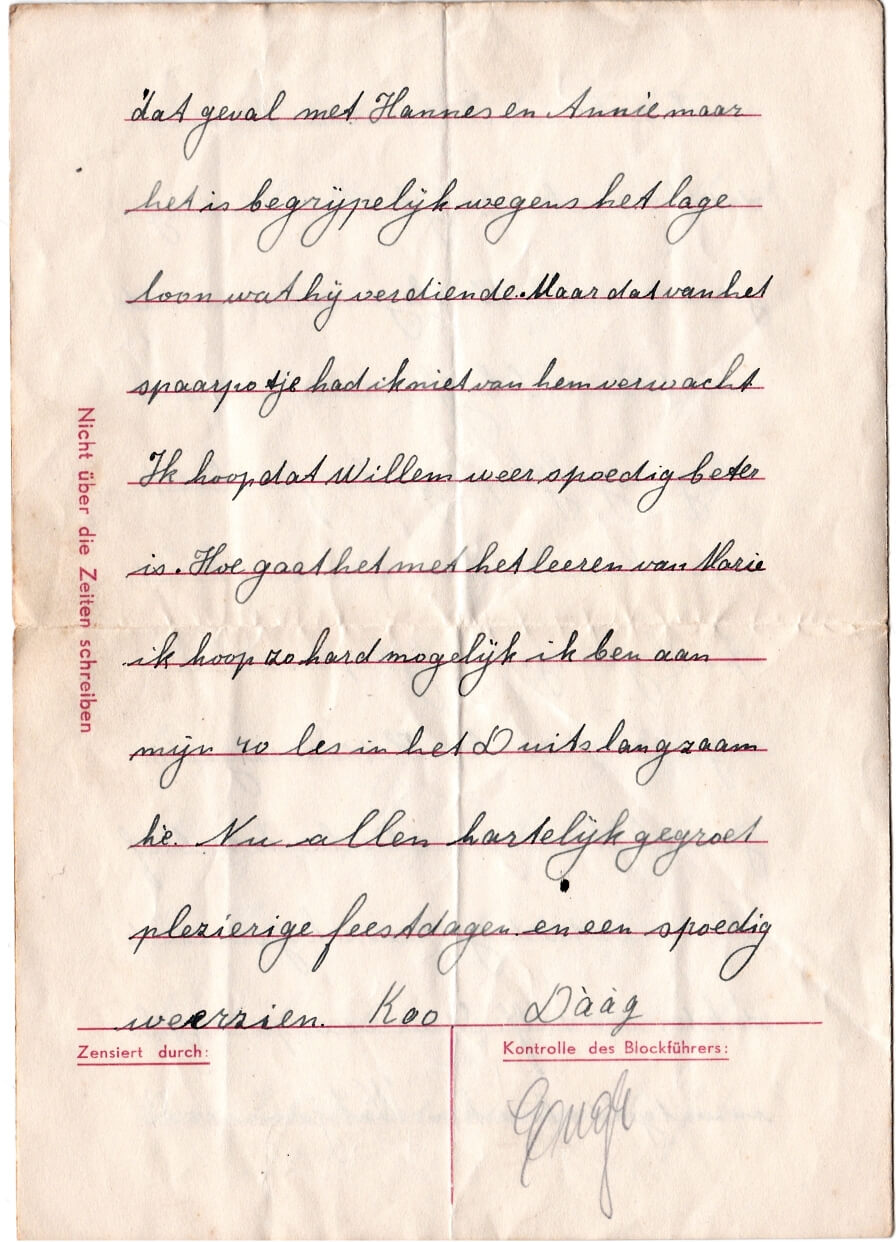 dat geval met Hannes en Annie maar
het is begrijpelijk wegens het lage
loon wat hij verdiende. Maar dat van het
spaarpotje had ik niet van hem verwacht
Ik hoop dat Willem weer spoedig beter
is. Hoe gaat het met het leeren van Marie
ik hoop zo hard mogelijk ik ben aan
mijn 40 les in het Duits langzaam
he. Nu allen hartelijk gegroet
plezierige feestdagen en een spoedig
weerzien. Koo Dààg
Nicht über die Zeiten schreiben
Zensiert durch:
Kontrolle des Blockführers: